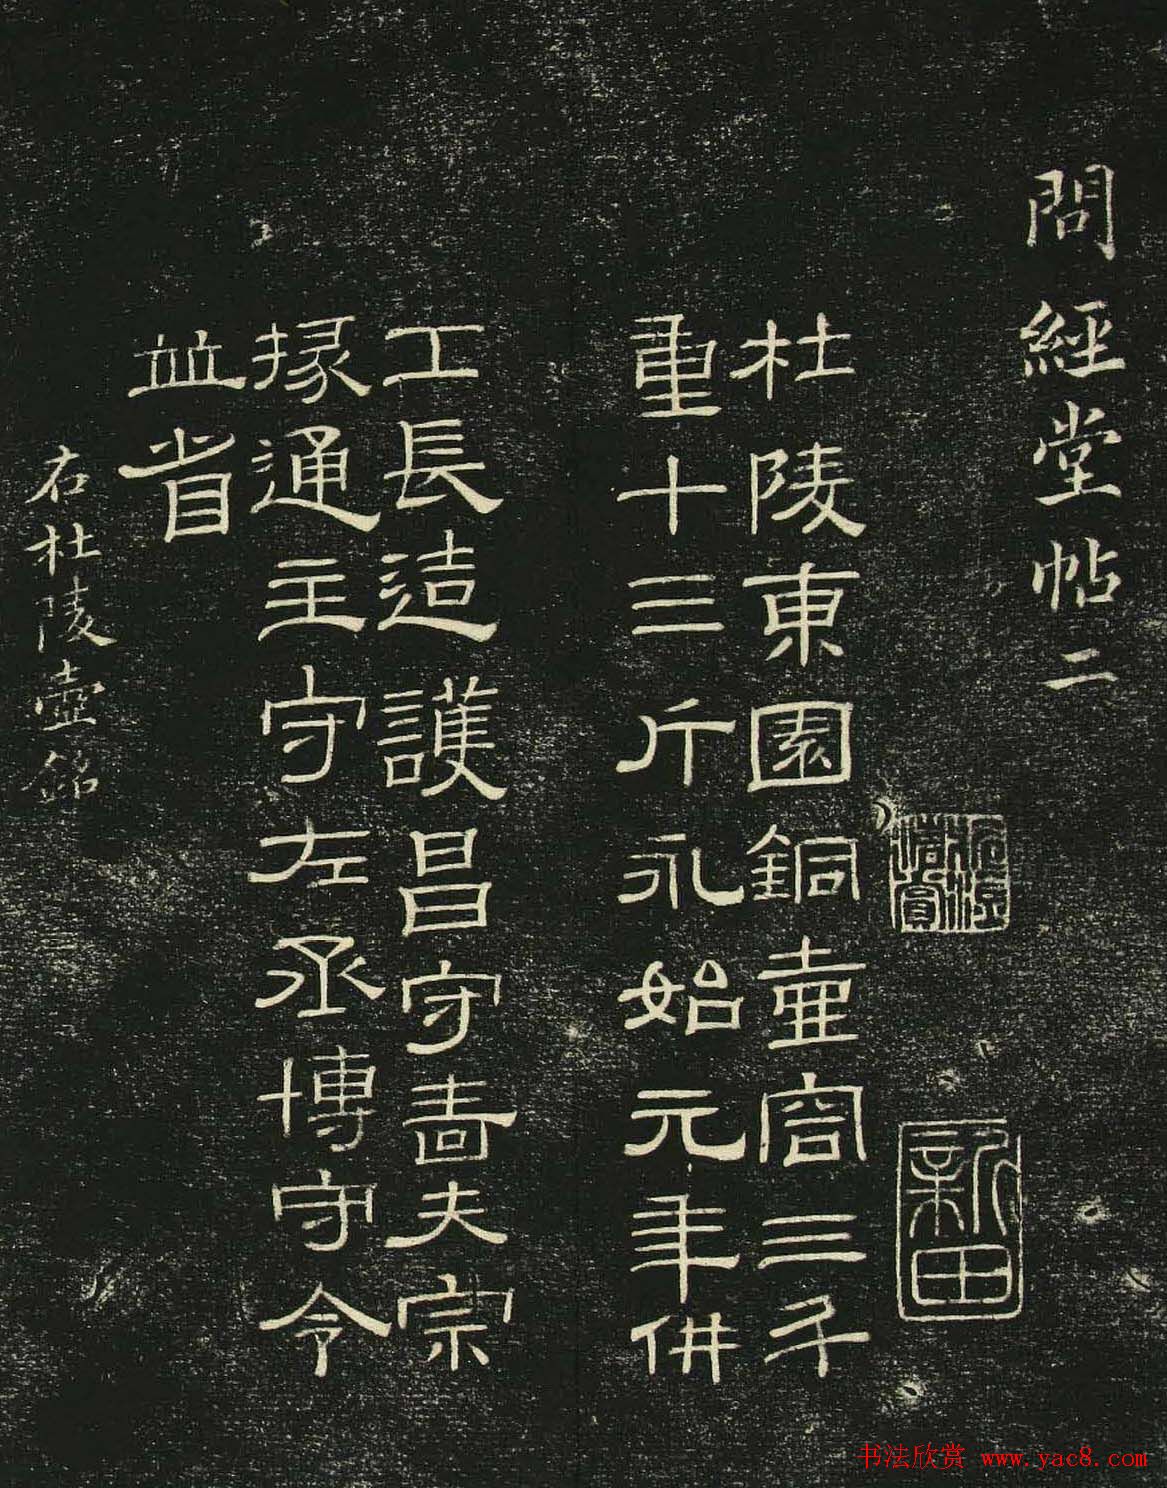 問經堂帖二
杜陵東園銅壺容三斗
重十三斤永始元年供
工長造護昌守嗇夫宗
掾通主守左丞博守令
並省
右杜陵壺銘
新田
书法欣赏 www.yac8.com